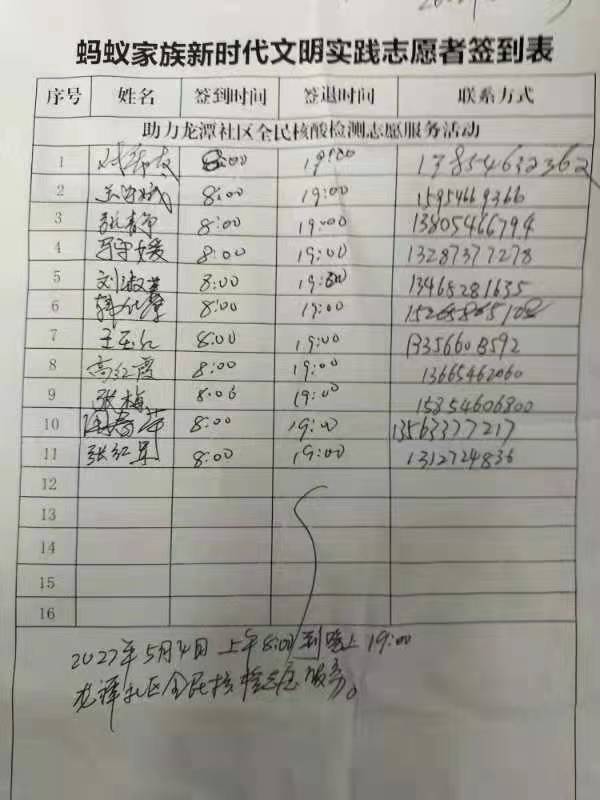 蚂蚁家族新时代文明实践志愿者签到表
序号 姓名 签到时间 签退时间 联系方式
助力龙潭社区全民核酸检测志愿服务活动
1 8:00 19:00 13854632362
2 8:00 19:00 15954669366
3 张春常 8:00 19:00 13805466794
4 8:00 19:00 13287377278
5 刘淑 8:00 19:00 13465281635
6 韩 8:00 19:00
7 王玉 8:00 19:00 13356608592
8 高红霞 8:00 19:00 13665462060
9 张梅 8:06 19:00 15854606800
10 8:00 19:00 13563377217
11 张红 8:00 19:00 1312724836
12
13
14
15
16
2022年5月4日 上午8:00到晚上19:00
龙潭社区全民核检志愿服务。